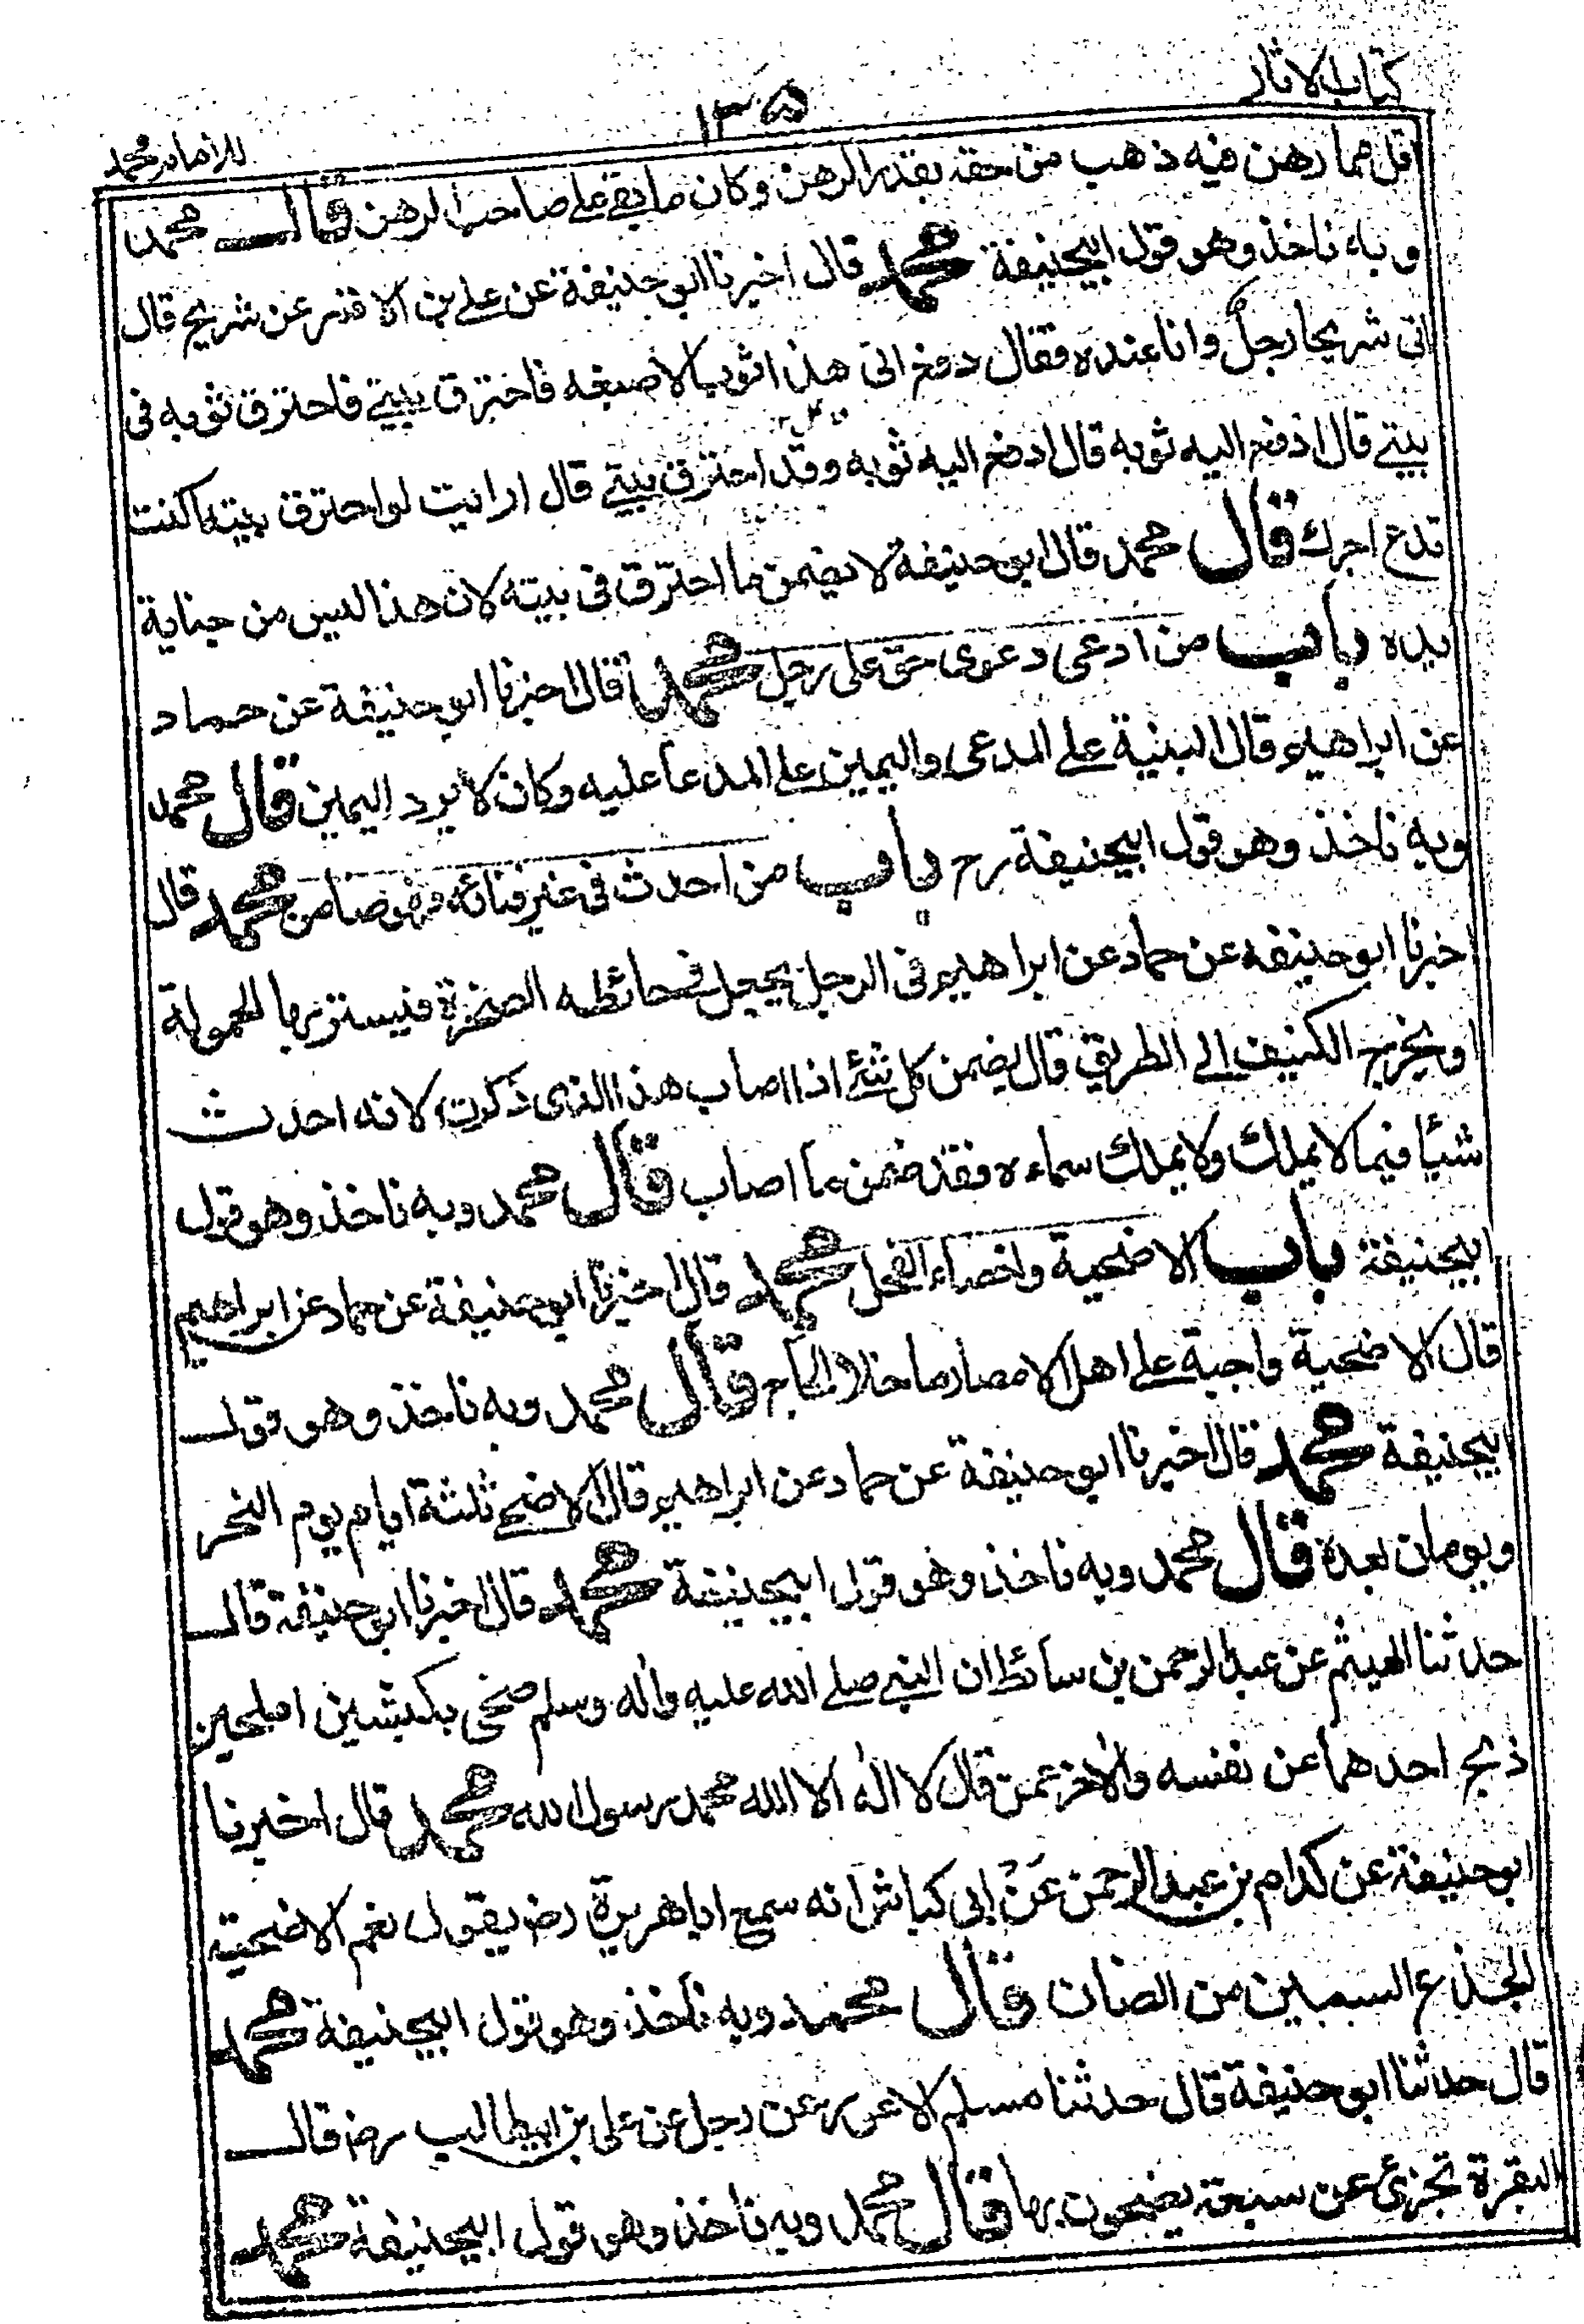 كتاب الاثار
١٣٥
للامام محمد
اقل مما رهن فيه ذهب من حقه بقدر الرهن وكان ما بقے علے صاحب الرهن قال محمد
وبه ناخذ وهو قول ابيحنيفة محمد قال اخبرنا ابو حنيفة عن علے بن الاقمر عن شريح قال
اتى شريحا رجل وانا عنده فقال دفع الى هذا ثوبا لاصبغه فاحترق بيتے فاحترق ثوبه فى
بيتے قال ادفع اليه ثوبه قال ادفع اليه ثوبه وقد احترق بيتے قال ارايت لو احترق بيته اكنت
تدع اجرك قال محمد قال ابو حنيفة لا يضمن ما احترق فى بيته لان هذا ليس من جناية
يده باب من ادعى دعوى حق على رجل محمد قال اخبرنا ابو حنيفة عن حماد
عن ابراهيم قال البينة علے المدعى واليمين علے المدعا عليه وكان لا يرد اليمين قال محمد
وبه ناخذ وهو قول ابيحنيفة رح باب من احدث فى غير فنائه فهو ضامن محمد قال
اخبرنا ابو حنيفة عن حماد عن ابراهيم فى الرجل يجعل فے حائطه الصخرة فيستتر بها الحمولة
او يخرج الكنيف الے الطريق قال يضمن كل شئے اذا اصاب هذا الذى ذكرت لانه احدث
شيًا فيما لا يملك ولا يملك سماءه فقد ضمن ما اصاب قال محمد وبه ناخذ وهو قول
ابيحنيفة باب الاضحية واخصاء الفحل محمد قال اخبرنا ابو حنيفة عن حماد عن ابراهيم
قال الاضحية واجبة علے اهل الامصار ما خلا الحاج قال محمد وبه ناخذ وهو قول
ابيحنيفة محمد قال اخبرنا ابو حنيفة عن حماد عن ابراهيم قال الاضحے ثلثة ايام يوم النحر
ويومان بعده قال محمد وبه ناخذ وهو قول ابيحنيفة محمد قال اخبرنا ابو حنيفة قال
حدثنا الهيثم عن عبد الرحمن بن سائط ان النبے صلے الله عليه واله وسلم ضحى بكبشين املحين
ذبح احدهما عن نفسه والاخر عمن قال لا اله الا الله محمد رسول الله محمد قال اخبرنا
ابو حنيفة عن كدام بن عبد الرحمن عَنْ ابى كباش انه سمع ابا هريرة رض يقول نعم الاضحية
الجذع السمين من الضان قال محمد وبه ناخذ وهو قول ابيحنيفة محمد
قال حدثنا ابو حنيفة قال حدثنا مسلم الاعور عن رجل عن على بن ابيطالب رض قال
البقرة تجزئ عن سبعة يضحون بها قال محمد وبه ناخذ وهو قول ابيحنيفة محمد